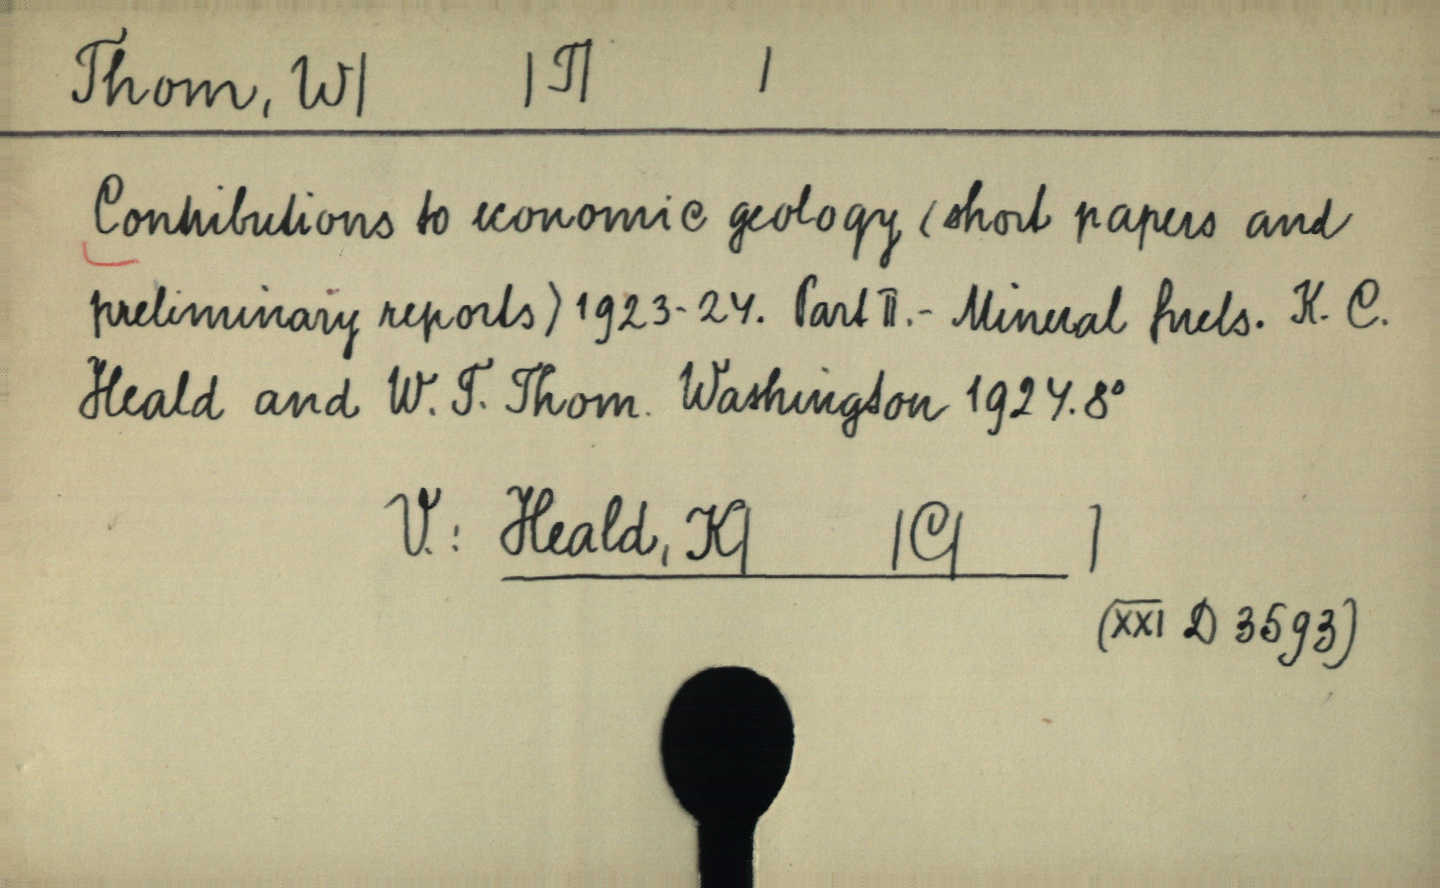 Thom, W| |T| |
Contributions to economic geology (short papers and
preliminary reports) 1923-24. Part II.- Mineral fuels. K. C.
Heald and W. T. Thom. Washington 1924. 8°
V.: Heald, K| |C| |
(XXI D 3593)